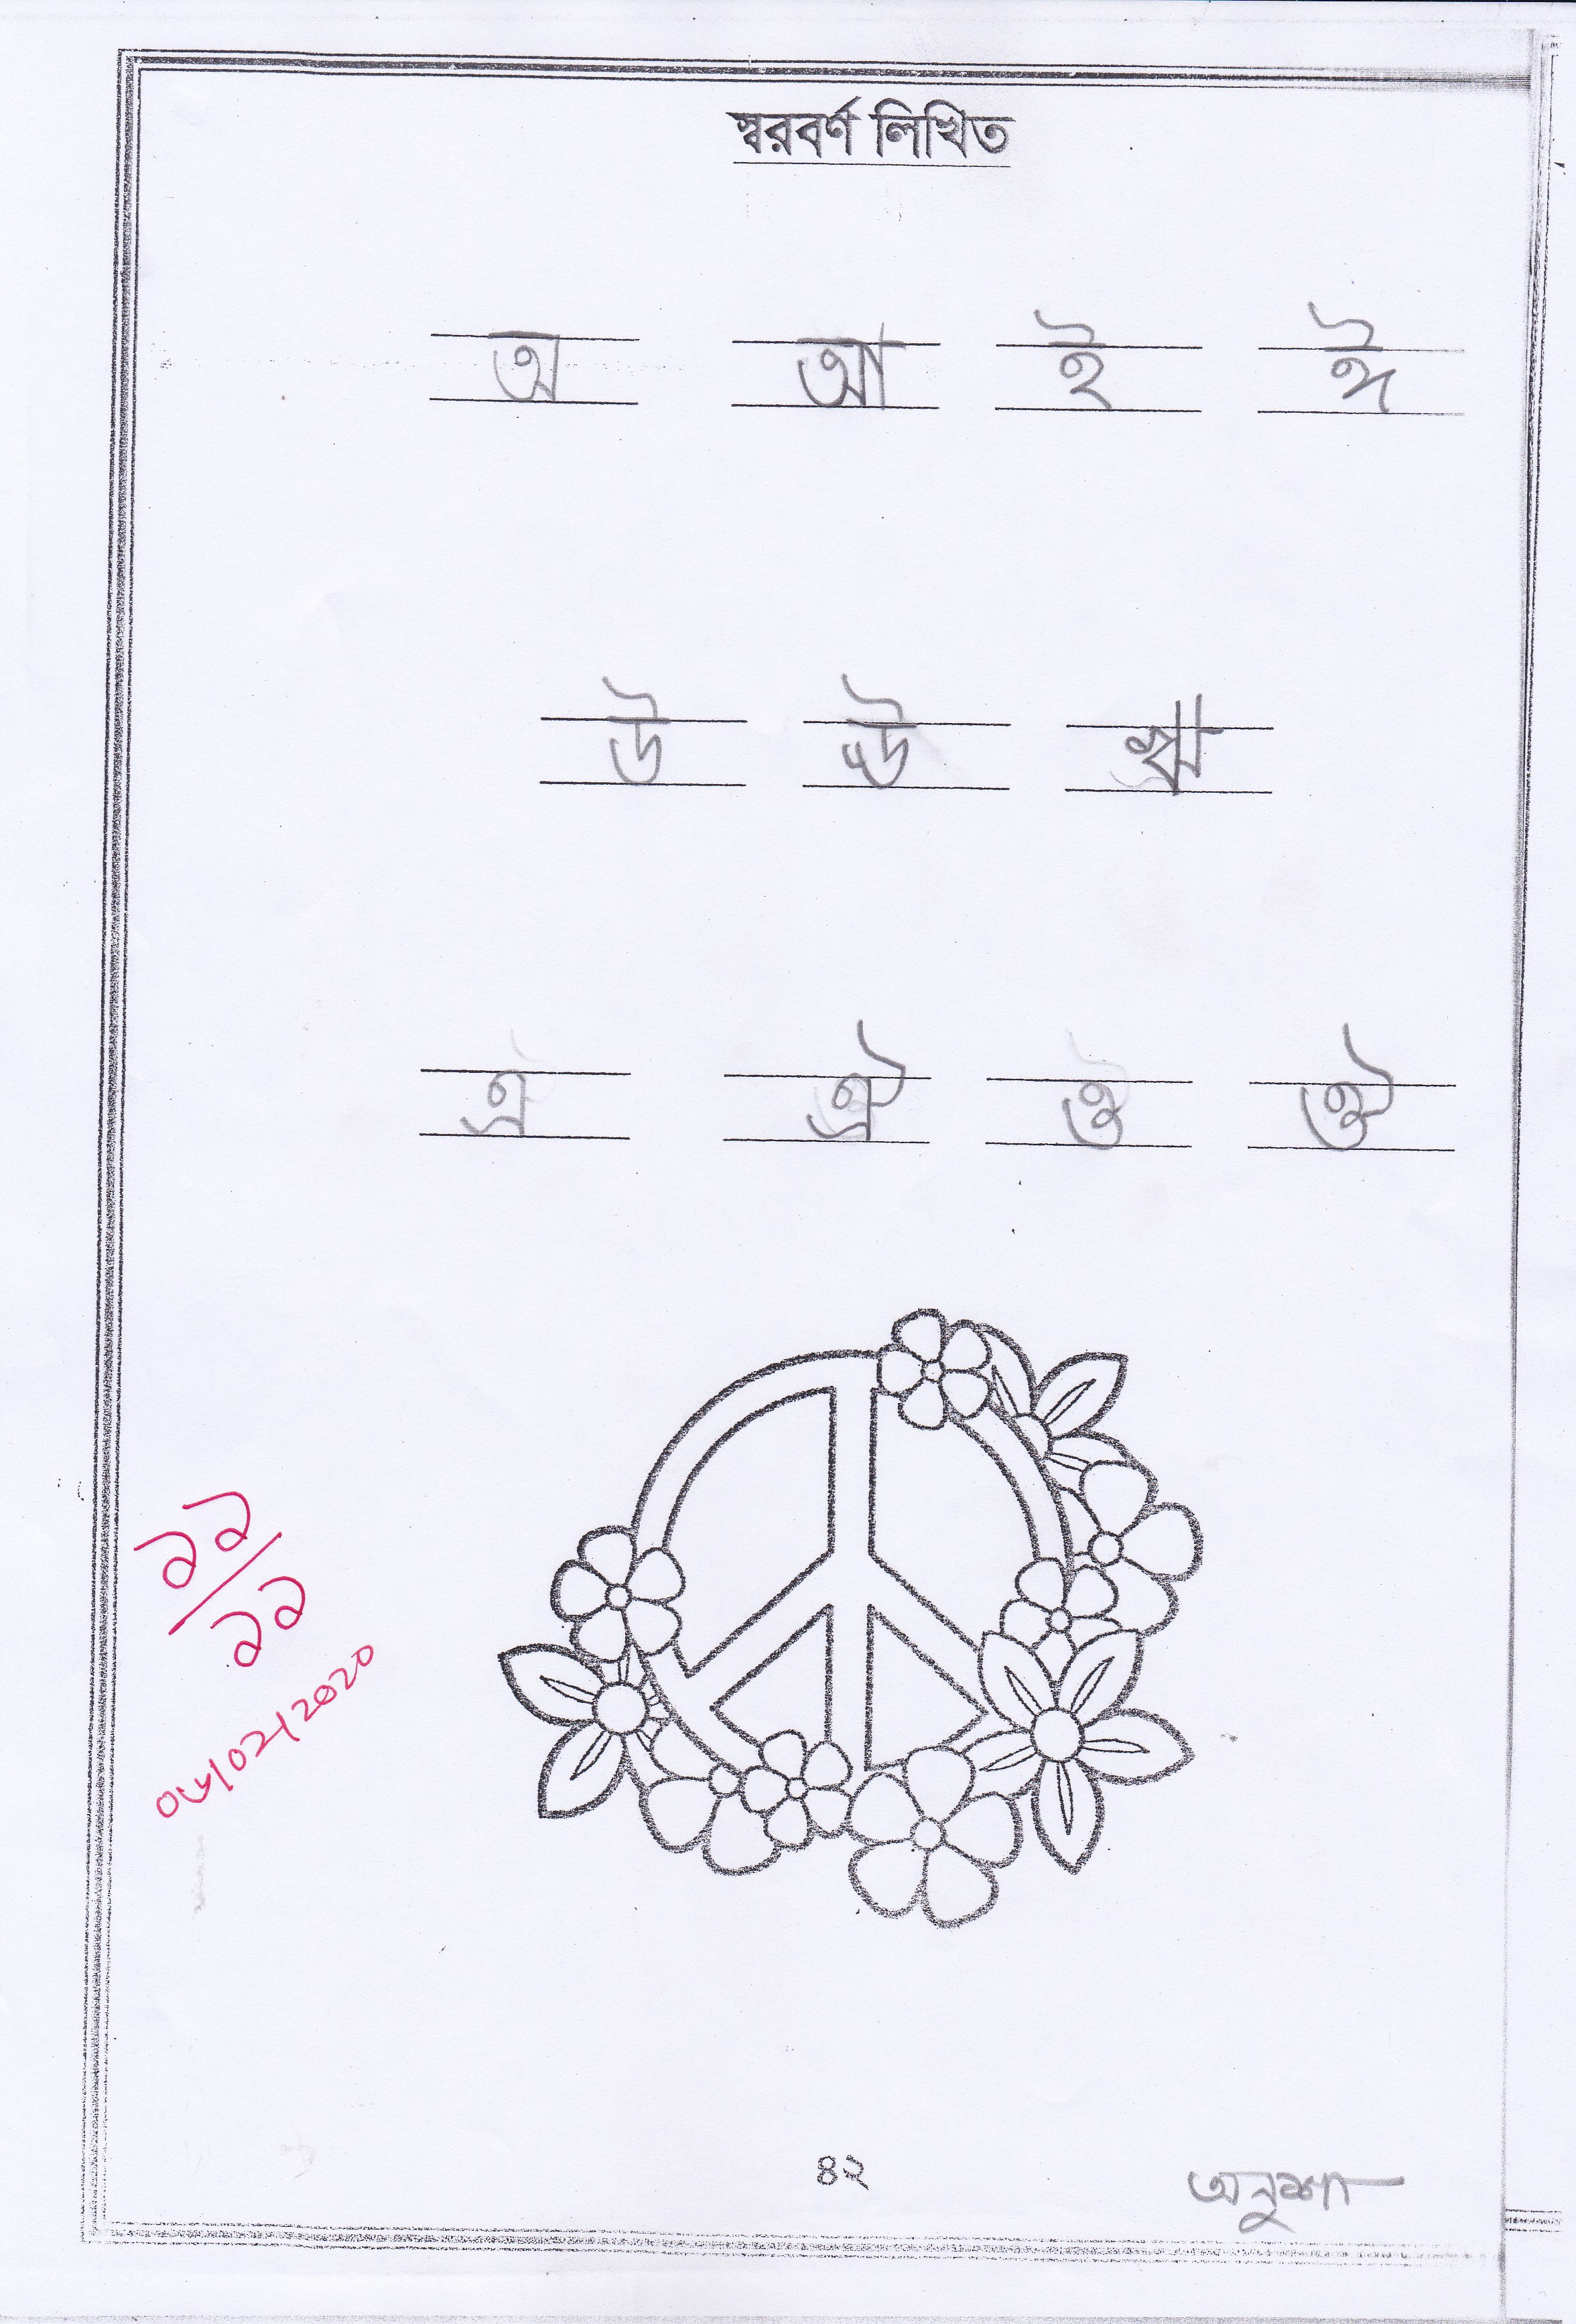 স্বরবর্ণ লিখিত
অ আ ই ঈ
উ ঊ ঋ
এ ঐ ও ঔ
১১
১১
০৬/০২/২০২০
৪২
অনুশা